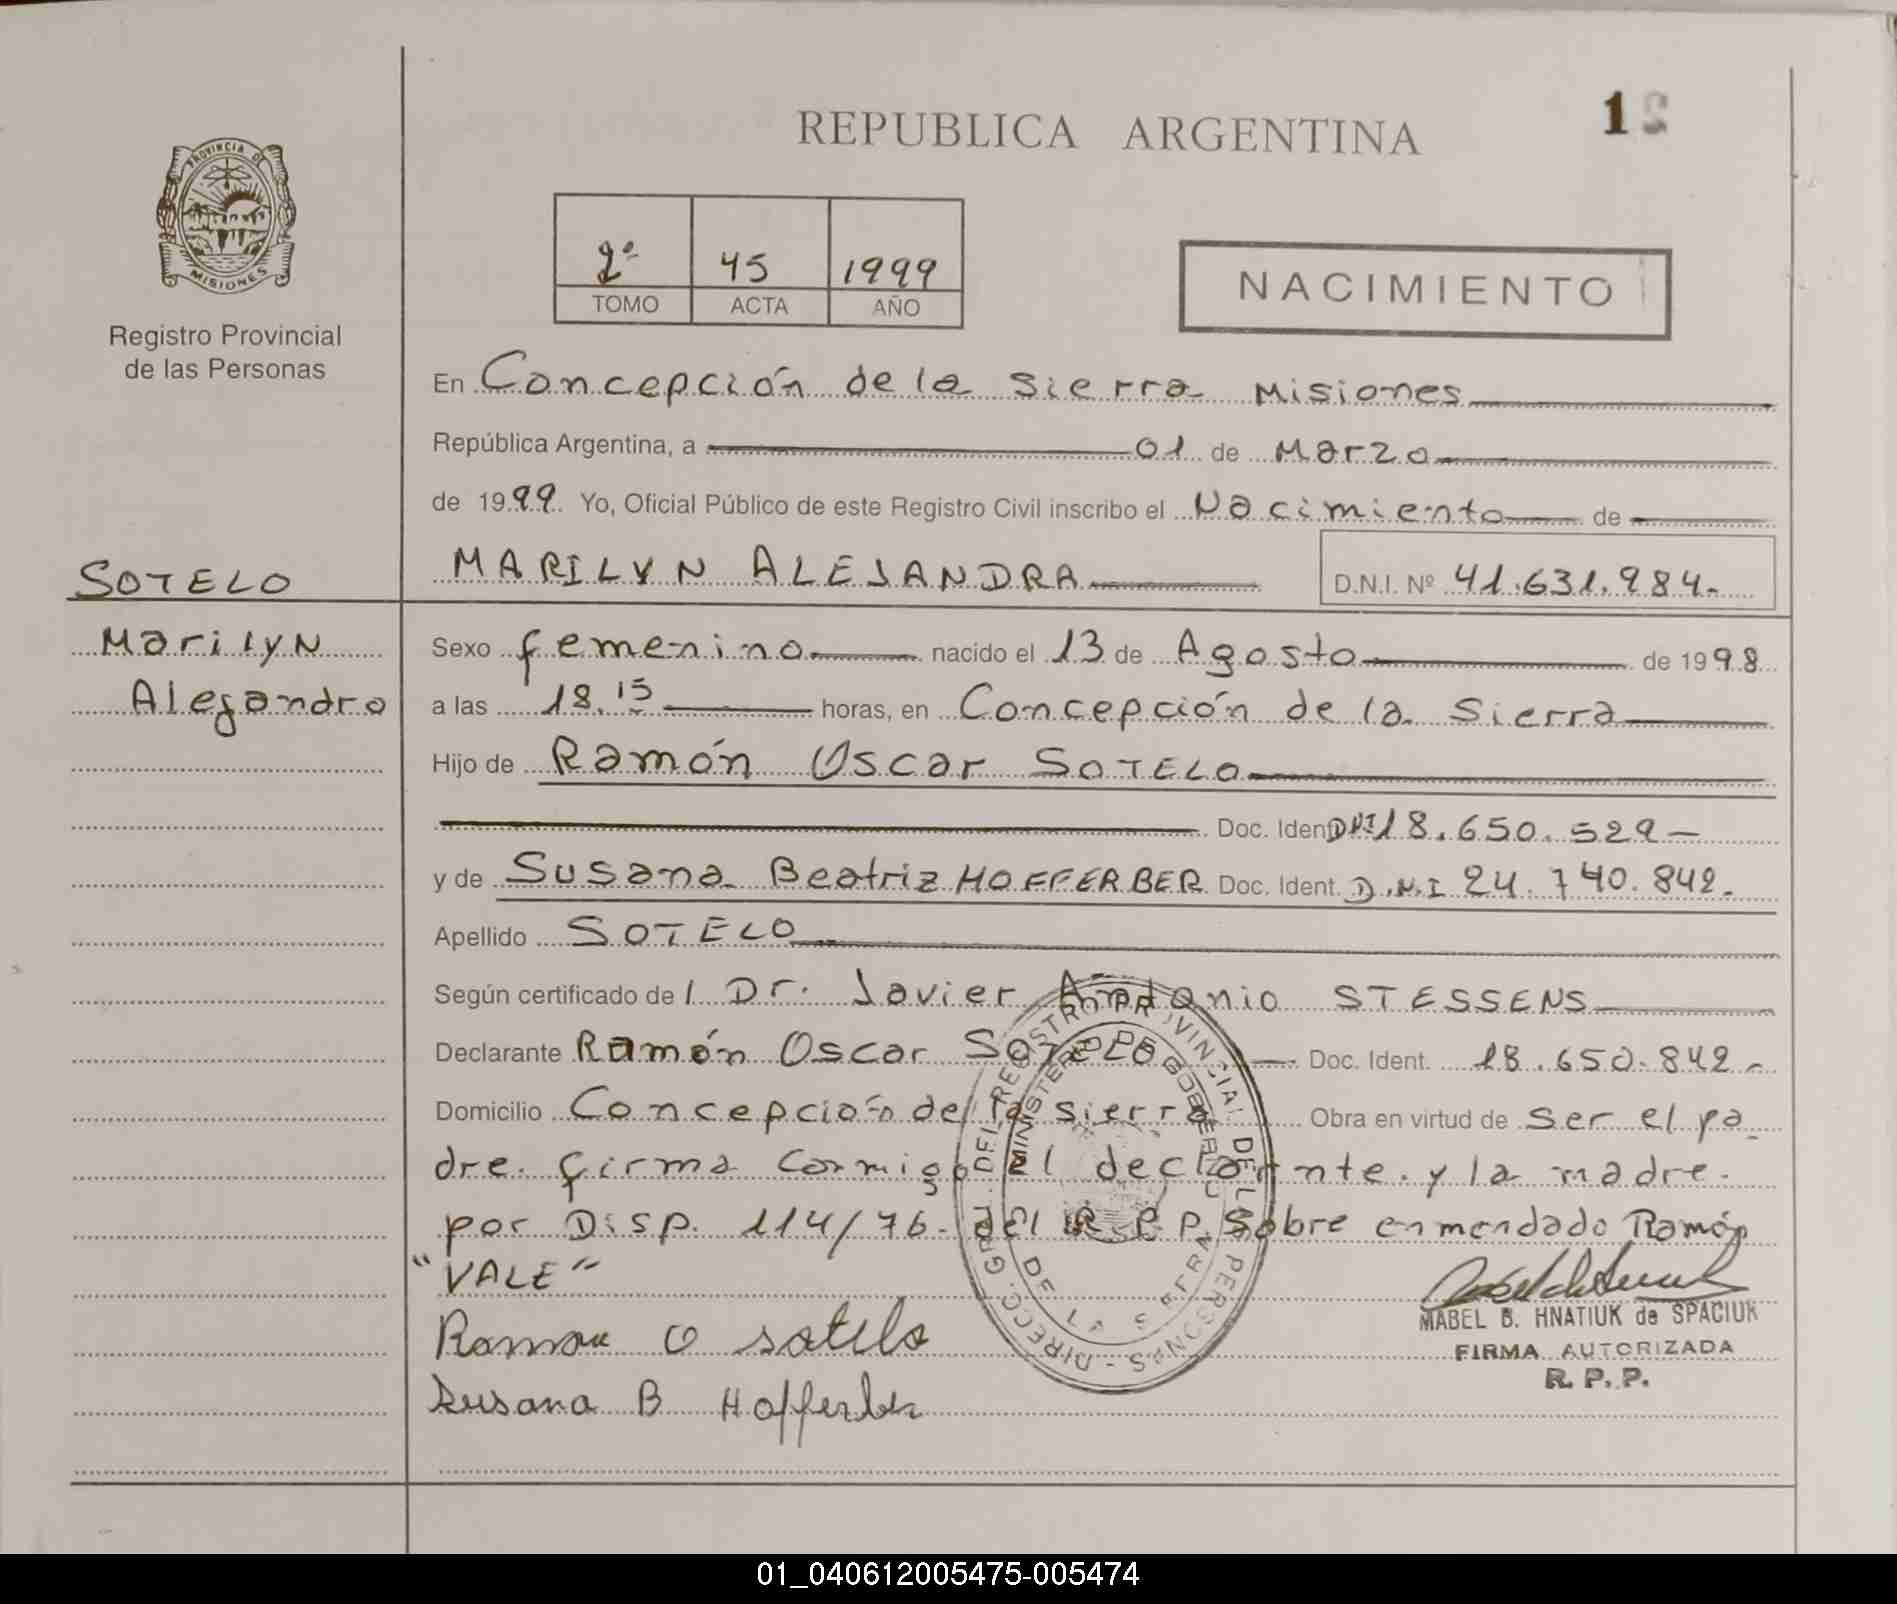 REPUBLICA ARGENTINA
1
PROVINCIA DE
MISIONES
Registro Provincial
de las Personas
2º 45 1999
TOMO ACTA AÑO
NACIMIENTO
En Concepción de la Sierra Misiones
República Argentina, a 01 de Marzo
de 1999. Yo, Oficial Público de este Registro Civil inscribo el Nacimiento de
MARILYN ALEJANDRA D.N.I. Nº 41.631.984.-
SOTELO
Marilyn
Alejandra
Sexo femenino nacido el 13 de Agosto de 1998
a las 18.15 horas, en Concepción de la Sierra
Hijo de Ramón Oscar SOTELO
Doc. Ident. DNI 18.650.529-
y de Susana Beatriz HOFFERBER Doc. Ident. D.N.I 24.740.842.
Apellido SOTELO
Según certificado del Dr. Javier Antonio STESSENS
Declarante Ramón Oscar SOTELO Doc. Ident. 18.650.842-
Domicilio Concepción de la Sierra Obra en virtud de Ser el pa-
dre. firma conmigo el declarante y la madre.
por Disp. 114/76. del R.P.P. Sobre enmendado Ramón
"VALE"
Ramon O Sotelo
Susana B Hofferber
DIRECC. GRAL. DEL REGISTRO PROVINCIAL DE LAS PERSONAS -
MINISTERIO DE GOBIERNO
DE LA
MABEL B. HNATIUK de SPACIUK
FIRMA AUTORIZADA
R. P. P.
01_040612005475-005474